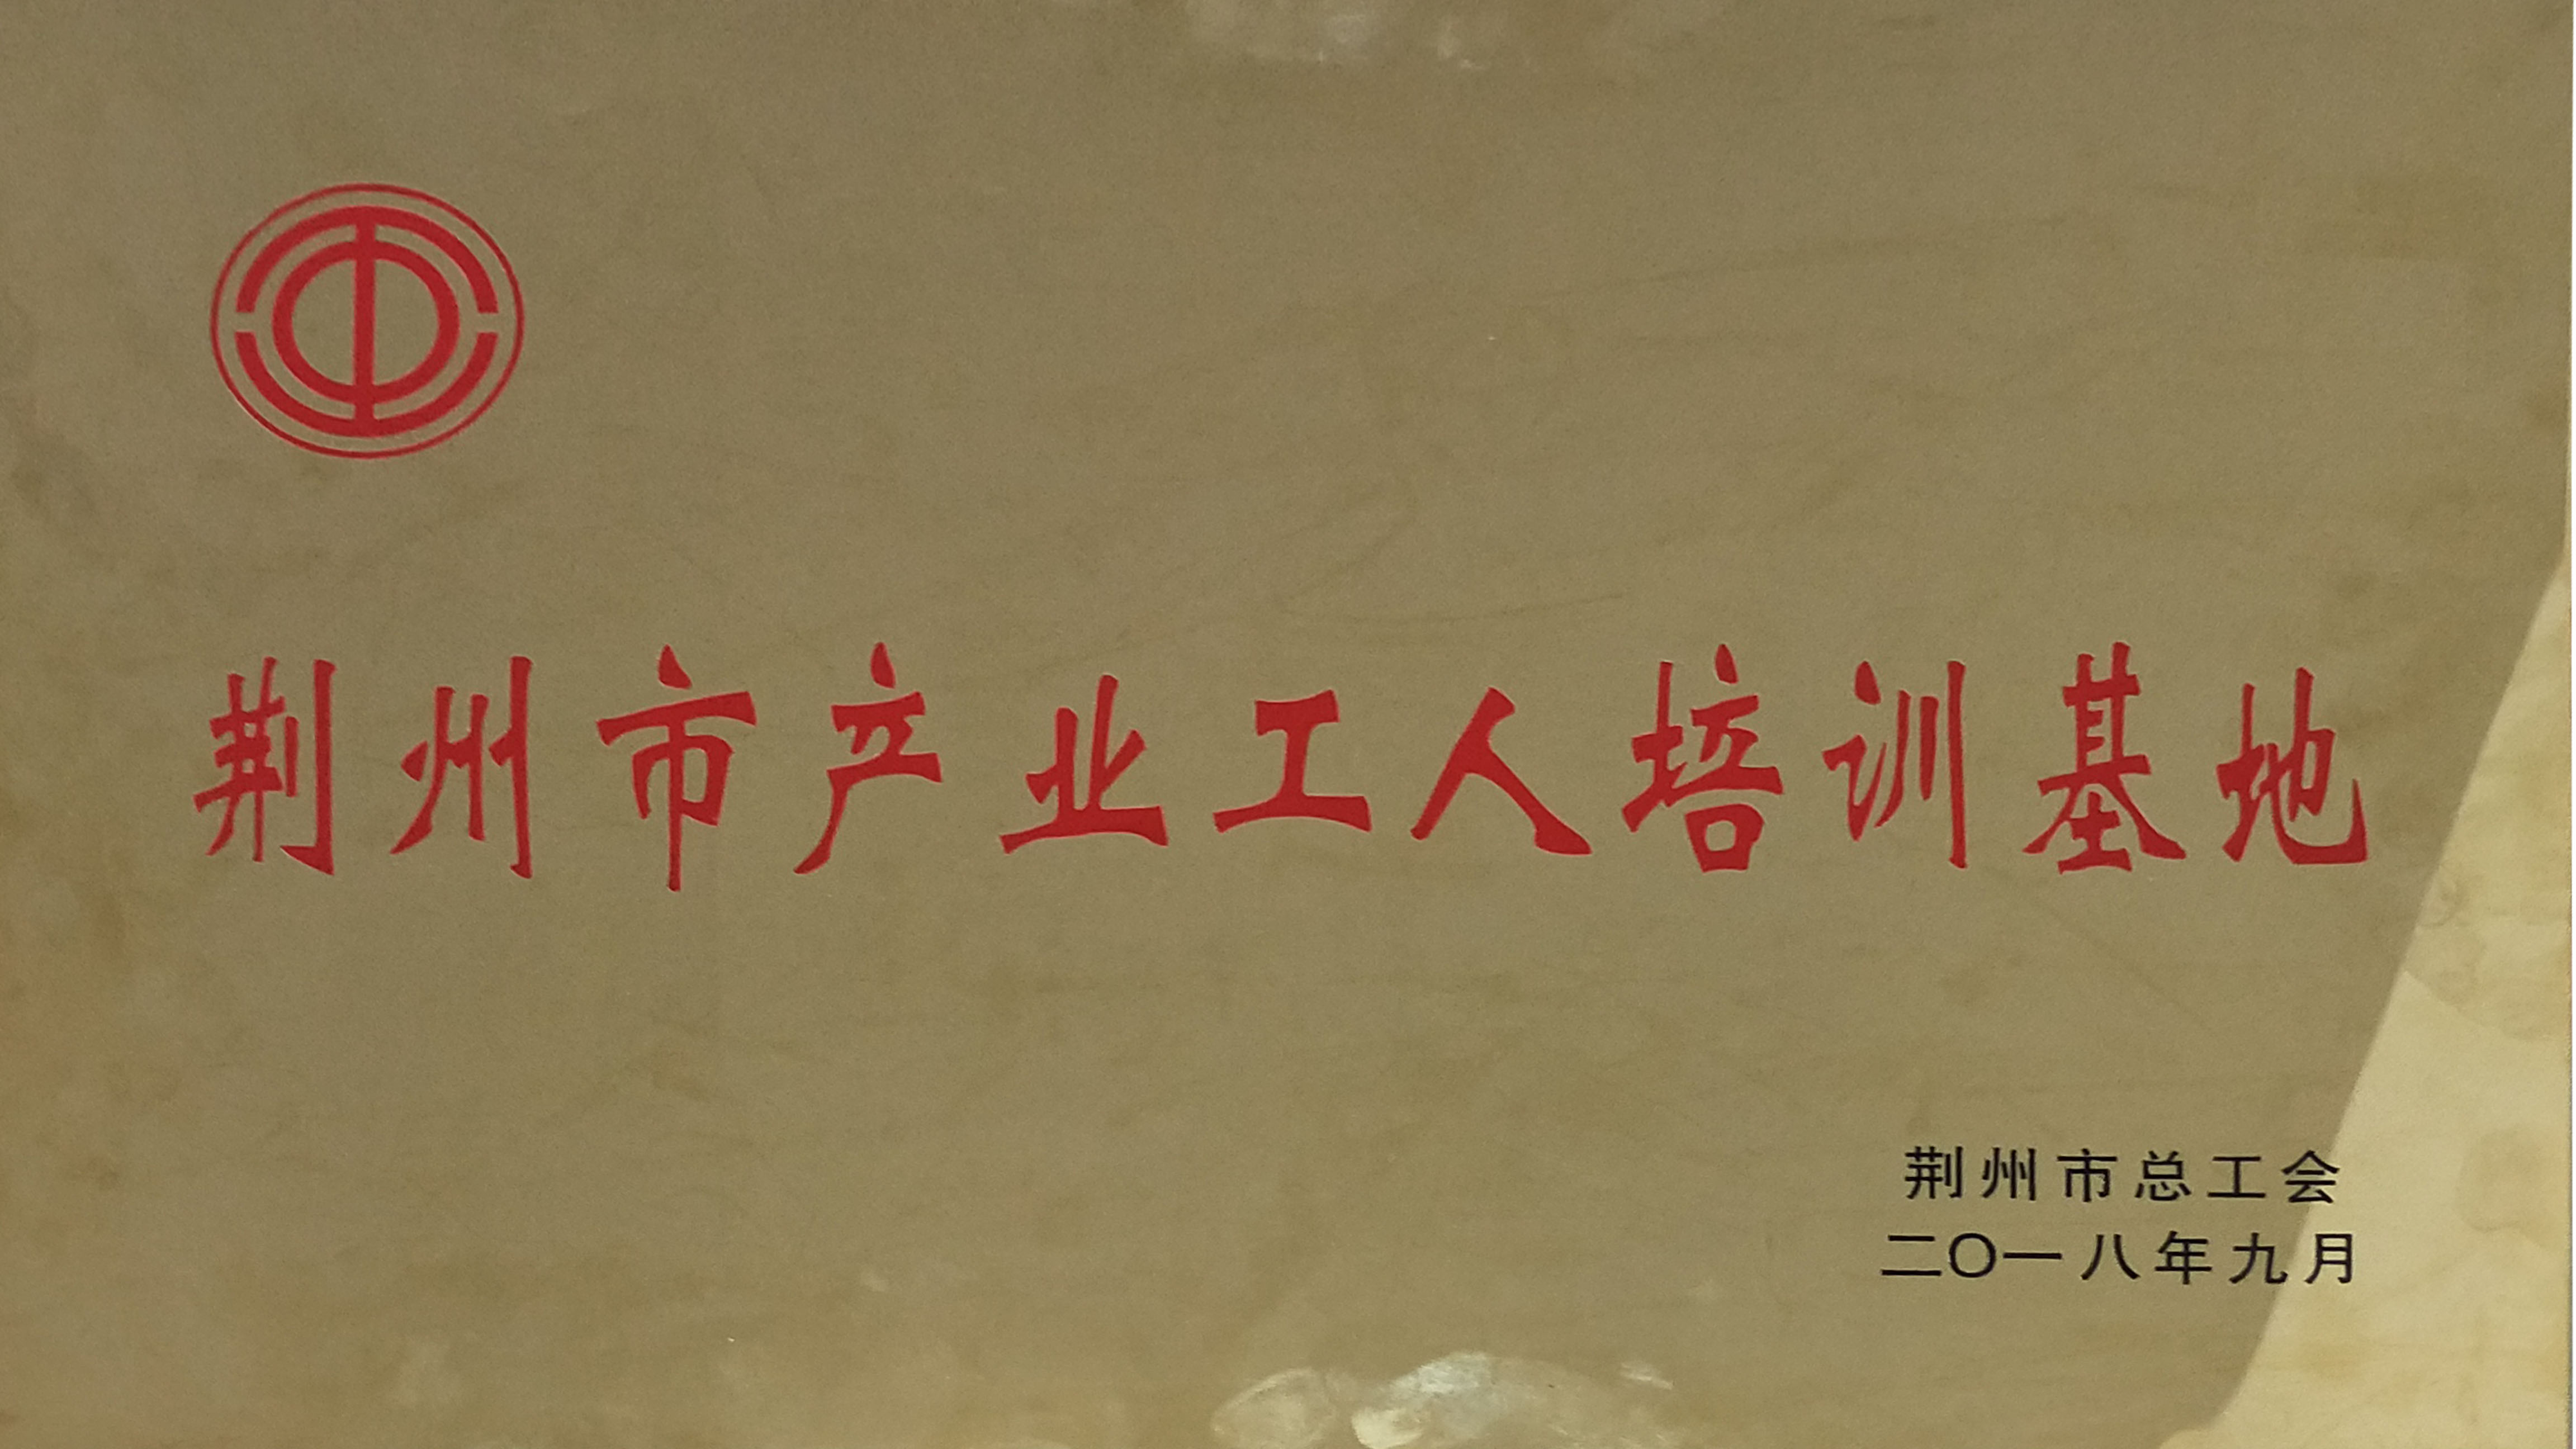 荆州市产业工人培训基地
荆州市总工会
二〇一八年九月